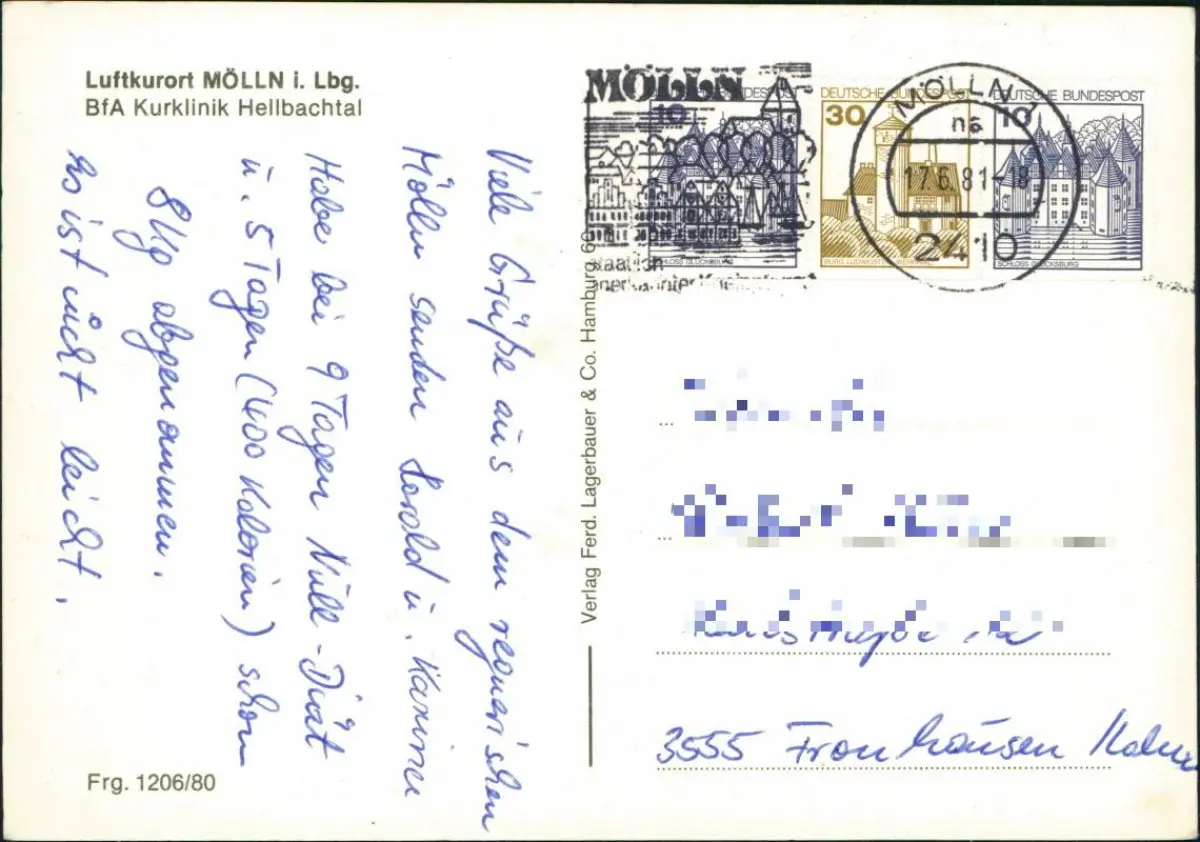 Luftkurort MÖLLN i. Lbg.
BfA Kurklinik Hellbachtal
Viele Grüße aus dem regnerischen
Mölln senden Harald u. Karin
Habe bei 9 Tagen Null-Diät
u. 5 Tagen (400 Kalorien) schon
8 kg abgenommen.
Es ist nicht leicht.
Frg. 1206/80
Verlag Ferd. Lagerbauer & Co. Hamburg 60
MÖLLN
10
DEUTSCHE BUNDESPOST
30
BURG LUDWIGSTEIN WERRATAL
DEUTSCHE BUNDESPOST
10
SCHLOSS GLÜCKSBURG
SCHLOSS GLÜCKSBURG
MÖLLN 1
na
17.6.81-18
2410
3555 Fronhausen